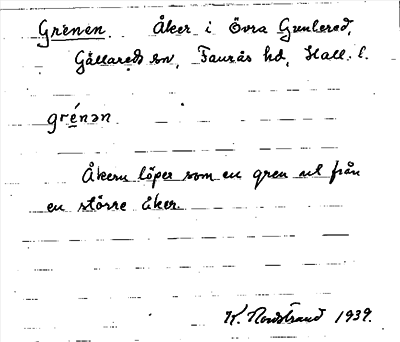 Grenen. Åker i Övra Gunbered,
Gällareds sn, Faurås hd, Hall. l.
grénən
Åkern löper som en gren ut från
en större åker.
K. Nordstrand 1939.